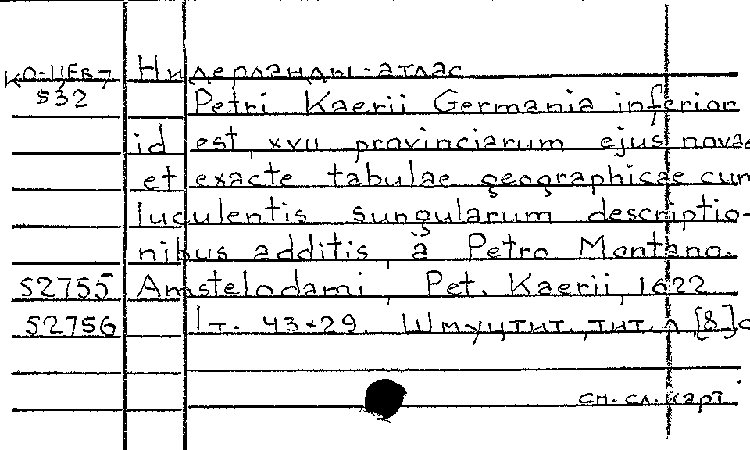 КО-ЦЕВ-7 Нидерланды-атлас
532 Petri Kaerii Germania inferior
id est, xvii provinciarum ejus novae
et exacte tabulae geographicae cum
luculentis sungularum descriptio-
nibus additis, à Petro Montano.
52755 Amstelodami, Pet. Kaerii, 1622
52756 1т. 43*29. Шмуцтит., тит. л [8]с
см. сл. карт.